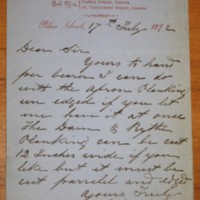 Pitea Island, 17th July 1892
Dear Sir
Yours to hand
per bearer I can do
with the apron Planking
un edged if you let
me have it at once
The Dam &
Planking can be cut
12 Inches wide if you
like but it must be
cut parrelel and edged
Yours Truly